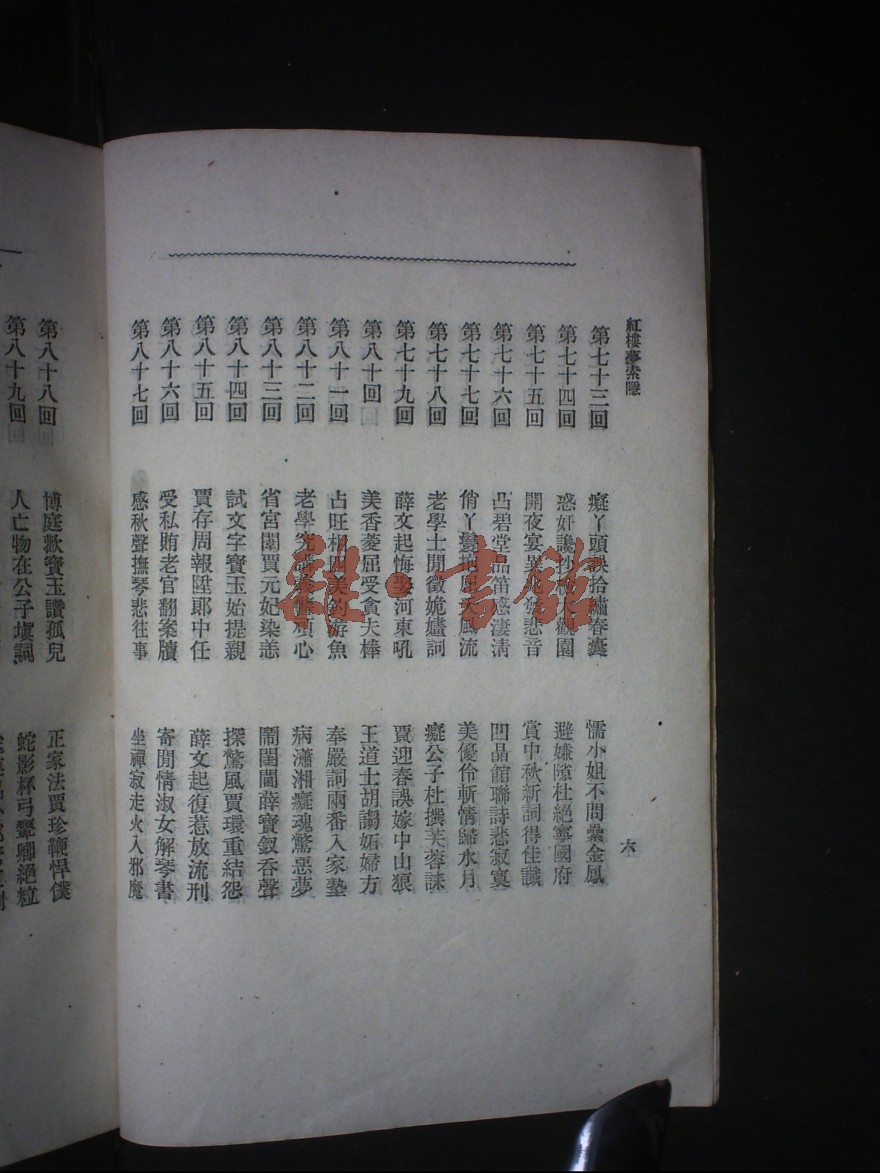 紅樓夢索隱
六
第七十三回 癡丫頭誤拾繡春囊 懦小姐不問纍金鳳
第七十四回 惑奸讒抄檢大觀園 避嫌隙杜絕寧國府
第七十五回 開夜宴異兆發悲音 賞中秋新詞得佳讖
第七十六回 凸碧堂品笛感淒清 凹晶館聯詩悲寂寞
第七十七回 俏丫鬟抱屈夭風流 美優伶斬情歸水月
第七十八回 老學士閒徵姽嫿詞 癡公子杜撰芙蓉誄
第七十九回 薛文起悔娶河東吼 賈迎春誤嫁中山狼
第八十回 美香菱屈受貪夫棒 王道士胡謅妬婦方
第八十一回 占旺相四美釣游魚 奉嚴詞兩番入家塾
第八十二回 老學究講義警頑心 病瀟湘癡魂驚惡夢
第八十三回 省宮闈賈元妃染恙 鬧閨閫薛寶釵吞聲
第八十四回 試文字寶玉始提親 探驚風賈環重結怨
第八十五回 賈存周報陞郎中任 薛文起復惹放流刑
第八十六回 受私賄老官翻案牘 寄閒情淑女解琴書
第八十七回 感秋聲撫琴悲往事 坐禪寂走火入邪魔
第八十八回 博庭歡寶玉讚孤兒 正家法賈珍鞭悍僕
第八十九回 人亡物在公子塡詞 蛇影杯弓顰卿絕粒
雜·書館